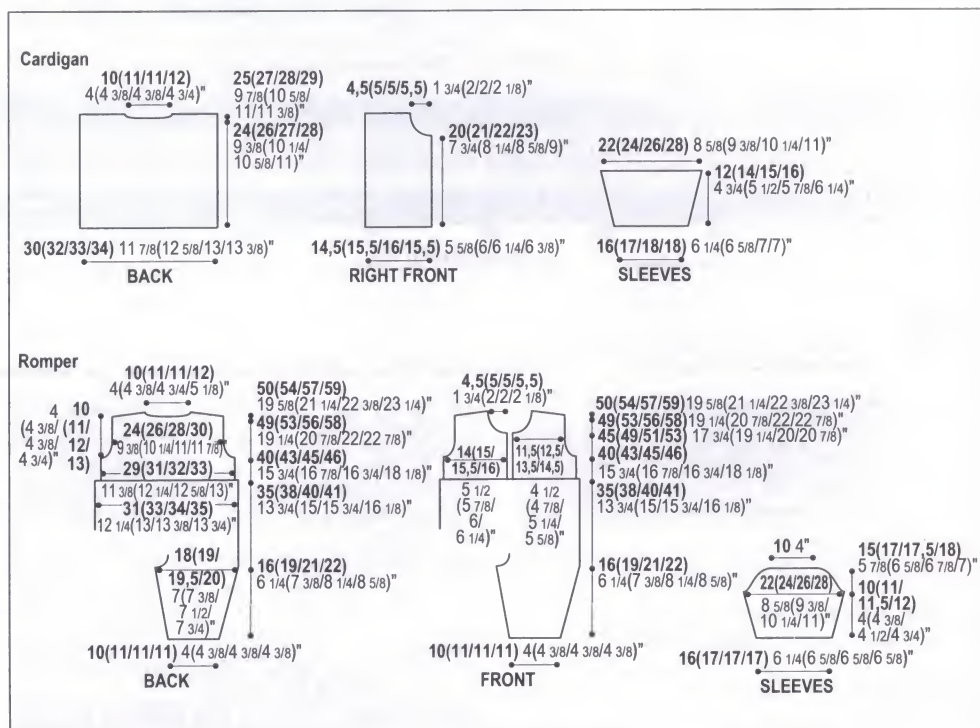 Cardigan
10(11/11/12)
4(4 3/8/4 3/8/4 3/4)"
25(27/28/29)
9 7/8(10 5/8/
11/11 3/8)"
24(26/27/28)
9 3/8(10 1/4/
10 5/8/11)"
30(32/33/34) 11 7/8(12 5/8/13/13 3/8)"
BACK
4,5(5/5/5,5) 1 3/4(2/2/2 1/8)"
20(21/22/23)
7 3/4(8 1/4/8 5/8/9)"
14,5(15,5/16/15,5) 5 5/8(6/6 1/4/6 3/8)"
RIGHT FRONT
22(24/26/28) 8 5/8(9 3/8/10 1/4/11)"
12(14/15/16)
4 3/4(5 1/2/5 7/8/6 1/4)"
16(17/18/18) 6 1/4(6 5/8/7/7)"
SLEEVES
Romper
10(11/11/12)
4(4 3/8/4 3/4/5 1/8)"
4
(4 3/8/
4 3/8/
4 3/4)"
10
(11/
12/
13)
24(26/28/30)
9 3/8(10 1/4/11/11 7/8)"
29(31/32/33)
11 3/8(12 1/4/12 5/8/13)"
31(33/34/35)
12 1/4(13/13 3/8/13 3/4)"
18(19/
19,5/20)
7(7 3/8/
7 1/2/
7 3/4)"
50(54/57/59)
19 5/8(21 1/4/22 3/8/23 1/4)"
49(53/56/58)
19 1/4(20 7/8/22/22 7/8)"
40(43/45/46)
15 3/4(16 7/8/16 3/4/18 1/8)"
35(38/40/41)
13 3/4(15/15 3/4/16 1/8)"
16(19/21/22)
6 1/4(7 3/8/8 1/4/8 5/8)"
10(11/11/11) 4(4 3/8/4 3/8/4 3/8)"
BACK
4,5(5/5/5,5)
1 3/4(2/2/2 1/8)"
14(15/
15,5/16)
5 1/2
(5 7/8/
6/
6 1/4)"
11,5(12,5/
13,5/14,5)
4 1/2
(4 7/8/
5 1/4/
5 5/8)"
50(54/57/59)19 5/8(21 1/4/22 3/8/23 1/4)"
49(53/56/58)19 1/4(20 7/8/22/22 7/8)"
45(49/51/53) 17 3/4(19 1/4/20/20 7/8)"
40(43/45/46)
15 3/4(16 7/8/16 3/4/18 1/8)"
35(38/40/41)
13 3/4(15/15 3/4/16 1/8)"
16(19/21/22)
6 1/4(7 3/8/8 1/4/8 5/8)"
10(11/11/11) 4(4 3/8/4 3/8/4 3/8)"
FRONT
10 4"
15(17/17,5/18)
5 7/8(6 5/8/6 7/8/7)"
22(24/26/28)
8 5/8(9 3/8/
10 1/4/11)"
10(11/
11,5/12)
4(4 3/8/
4 1/2/4 3/4)"
16(17/17/17) 6 1/4(6 5/8/6 5/8/6 5/8)"
SLEEVES